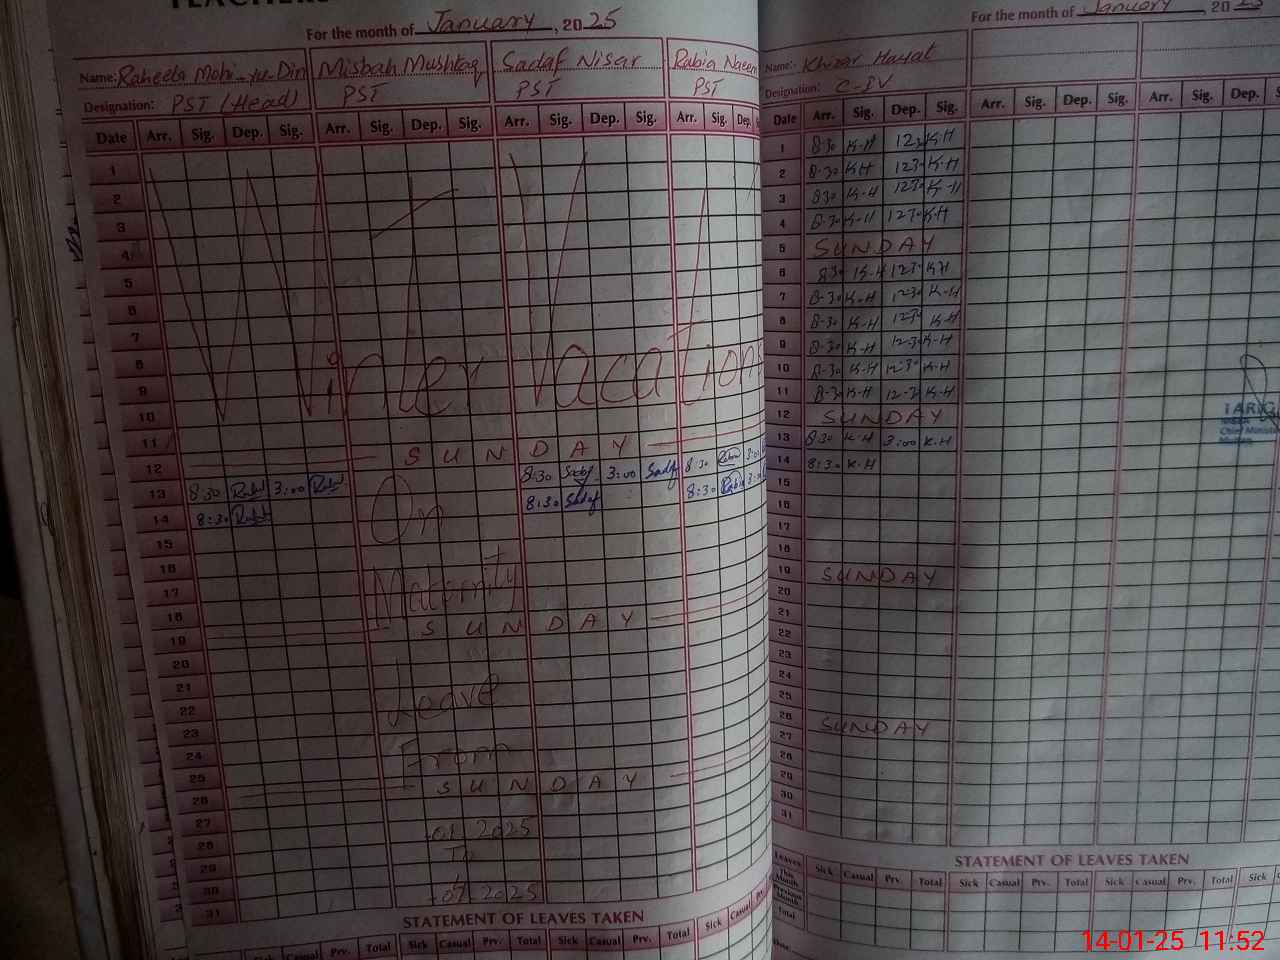 For the month of January, 2025
Name: Raheela Mohi-yu-Din Misbah Mushtaq Sadaf Nisar Rabia Naeem
Designation: PST (Head) PST PST PST
Date Arr. Sig. Dep. Sig. Arr. Sig. Dep. Sig. Arr. Sig. Dep. Sig. Arr. Sig. Dep.
1
2
3
4
5
6
7
8
9
10
Winter Vacations
11
12 SUNDAY
13 8:30 3:00 8:30 Sadf 3:00 Sadf 8:30 Rabia 3:00
14 8:30 8:30 Sadf 8:30 Rabia 3:00
On
15
16
17
Maternity
18
19 SUNDAY
20
21
22
Leave
23
24
From
25
26 SUNDAY
27
-01-2025
28
To
29
30
-07-2025
31
STATEMENT OF LEAVES TAKEN
Total Sick Casual Prv. Total Sick Casual Prv. Total Sick Casual
For the month of January, 2025
Name:- Khizar Hayat
Designation: C-IV
Date Arr. Sig. Dep. Sig. Arr. Sig. Dep. Sig. Arr. Sig. Dep.
1 8-30 K-H 12-30 K-H
2 8-30 K-H 12-30 K-H
3 8-30 K-H 12-30 K-H
4 8-30 K-H 12-30 K-H
5 SUNDAY
6 8-30 K-H 12-30 K-H
7 8-30 K-H 12-30 K-H
8 8-30 K-H 12-30 K-H
9 8-30 K-H 12-30 K-H
10 8-30 K-H 12-30 K-H
11 8-30 K-H 12-30 K-H
12 SUNDAY
13 8-30 K-H 3:00 K-H
14 8:30 K-H
15
16
17
18
19 SUNDAY
20
21
22
23
24
25
26 SUNDAY
27
28
29
30
31
STATEMENT OF LEAVES TAKEN
Leaves Sick Casual Prv. Total Sick Casual Prv. Total Sick Casual Prv. Total Sick
This Month
Previous Month
Total
14-01-25 11:52